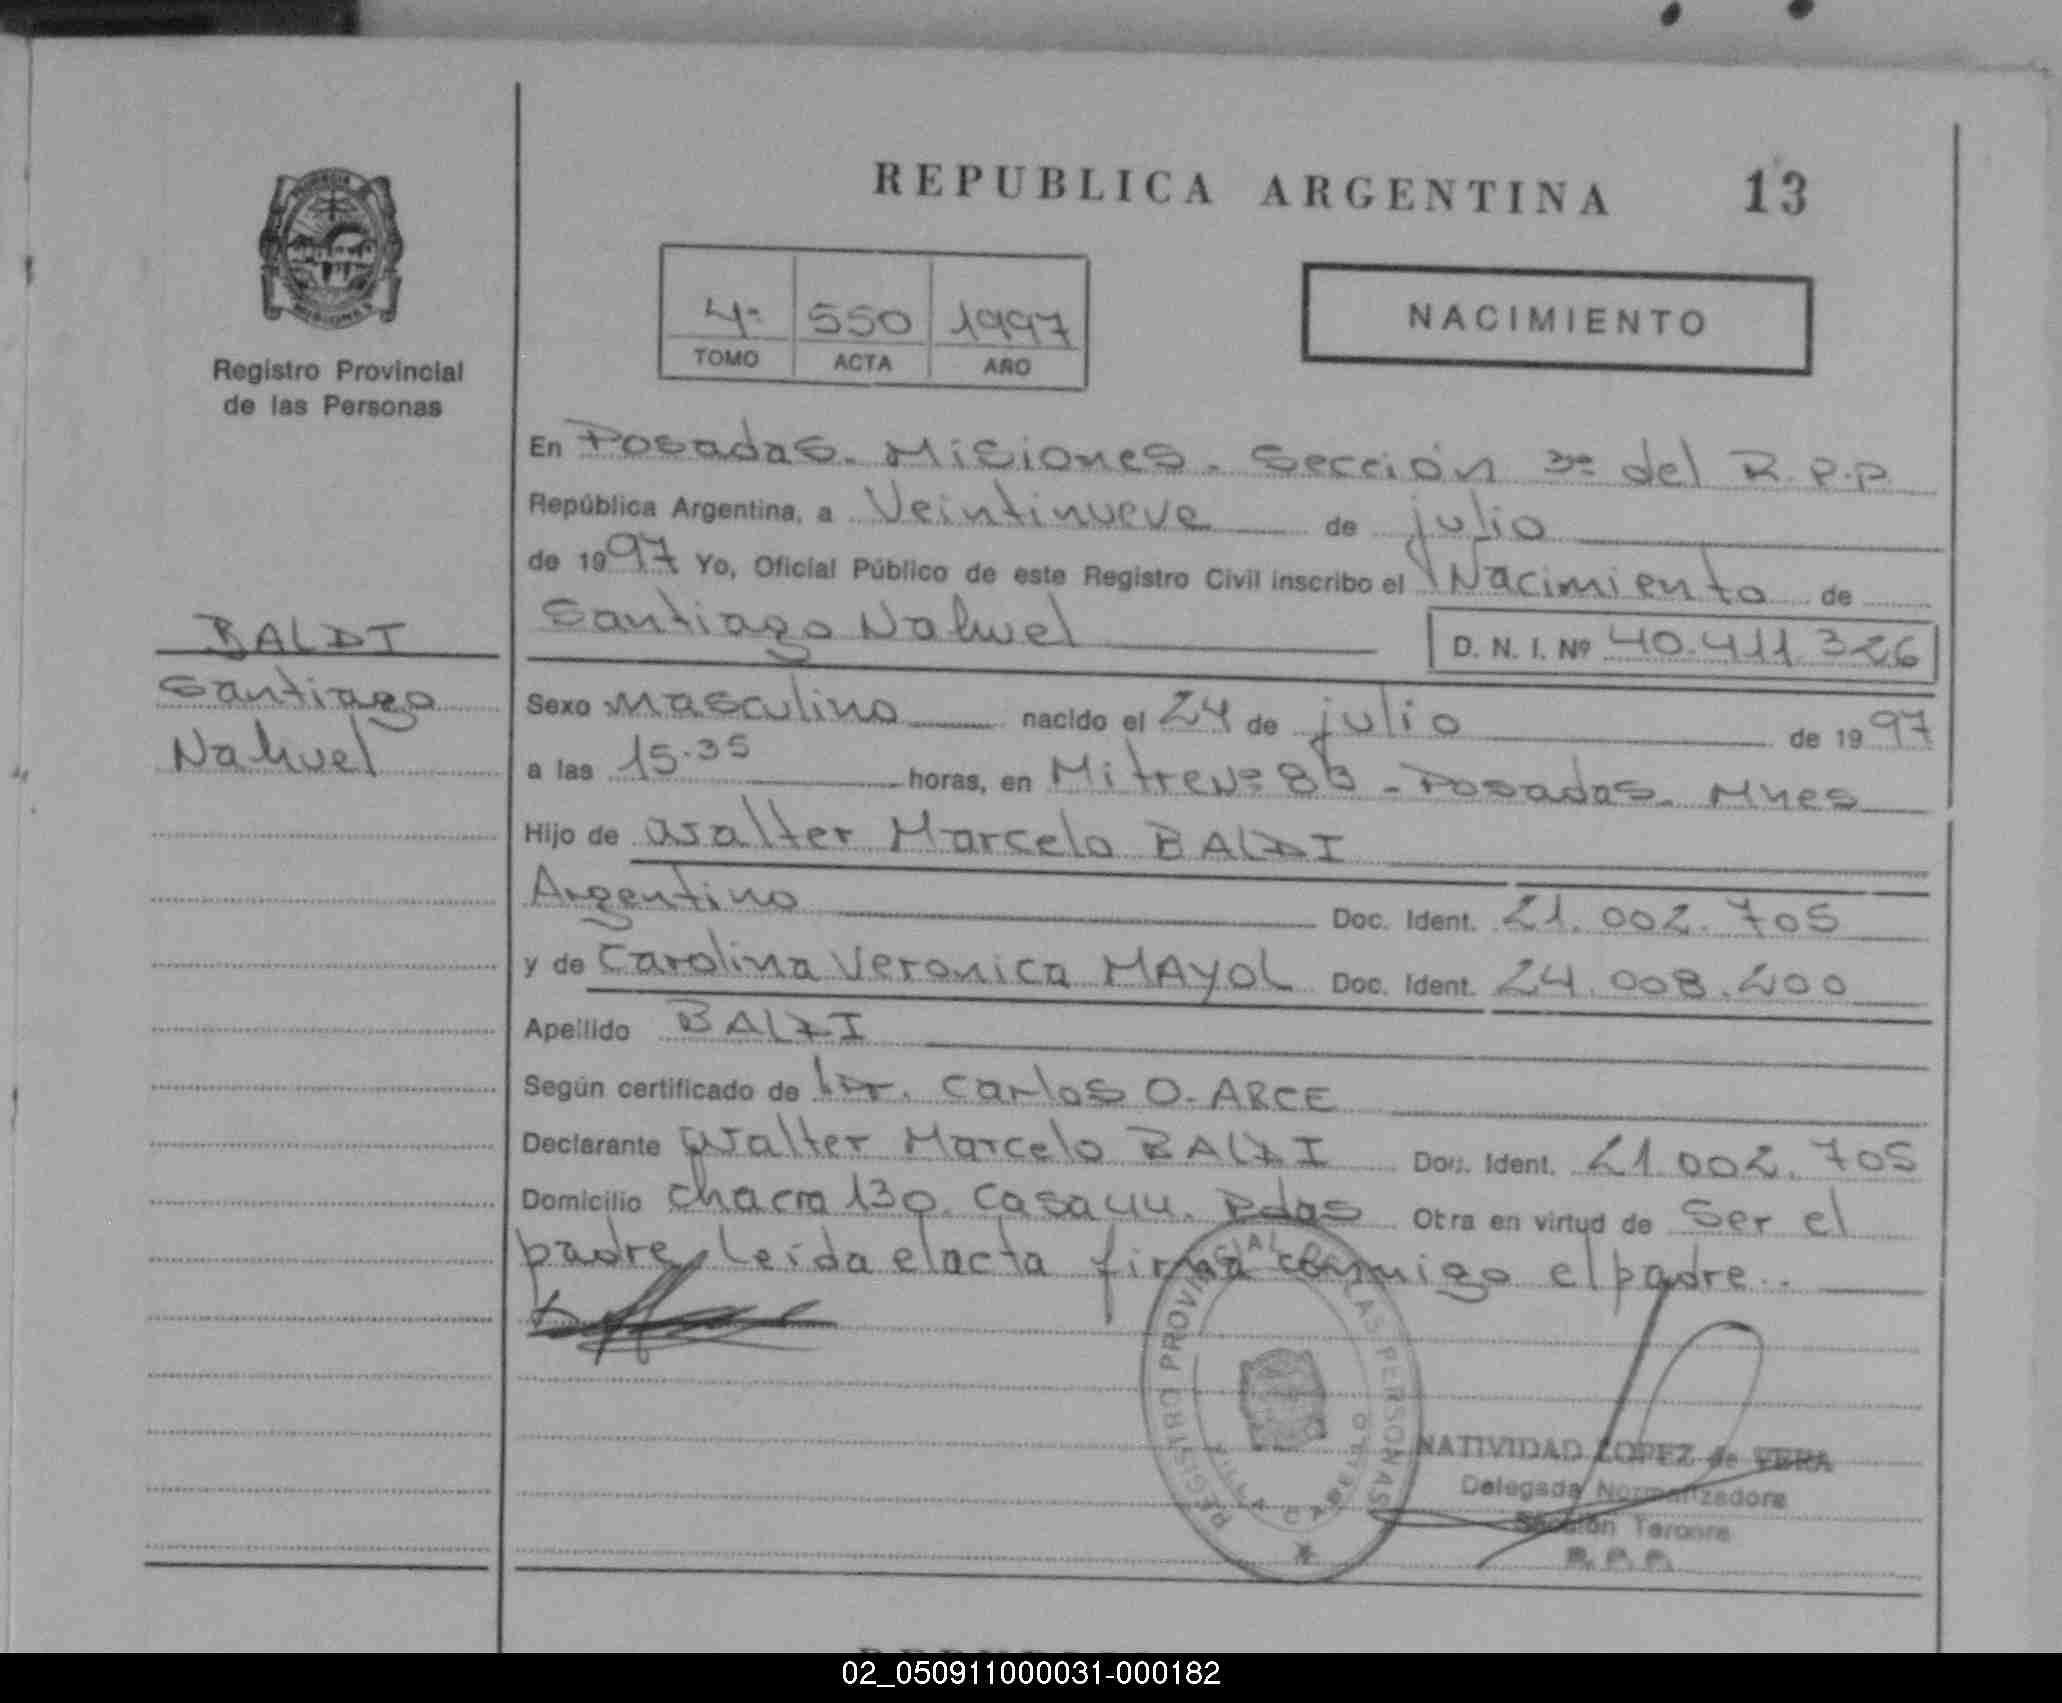 REPUBLICA ARGENTINA 13
Registro Provincial
de las Personas
4º 550 1997
TOMO ACTA AÑO
NACIMIENTO
BALDI
Santiago
Nahuel
En Posadas. Misiones. Sección 3º del R.P.P
República Argentina, a Veintinueve de julio
de 1997 Yo, Oficial Público de este Registro Civil inscribo el Nacimiento de
Santiago Nahuel D. N. I. Nº 40.411.326
Sexo masculino nacido el 24 de julio de 1997
a las 15.35 horas, en Mitre Nº 83 - Posadas. Mnes
Hijo de Walter Marcelo BALDI
Argentino Doc. Ident. 21.002.705
y de Carolina Veronica MAYOL Doc. Ident. 24.008.200
Apellido BALDI
Según certificado de Dr. Carlos O. ARCE
Declarante Walter Marcelo BALDI Doc. Ident. 21.002.705
Domicilio chacra 130. casa 44. Pdas Otra en virtud de Ser el
padre, leída el acta firma conmigo el padre..
REGISTRO PROVINCIAL DE LAS PERSONAS
NATIVIDAD LOPEZ de VERA
Delegada Normalizadora
Sección Tercera
R. P. P.
02_050911000031-000182